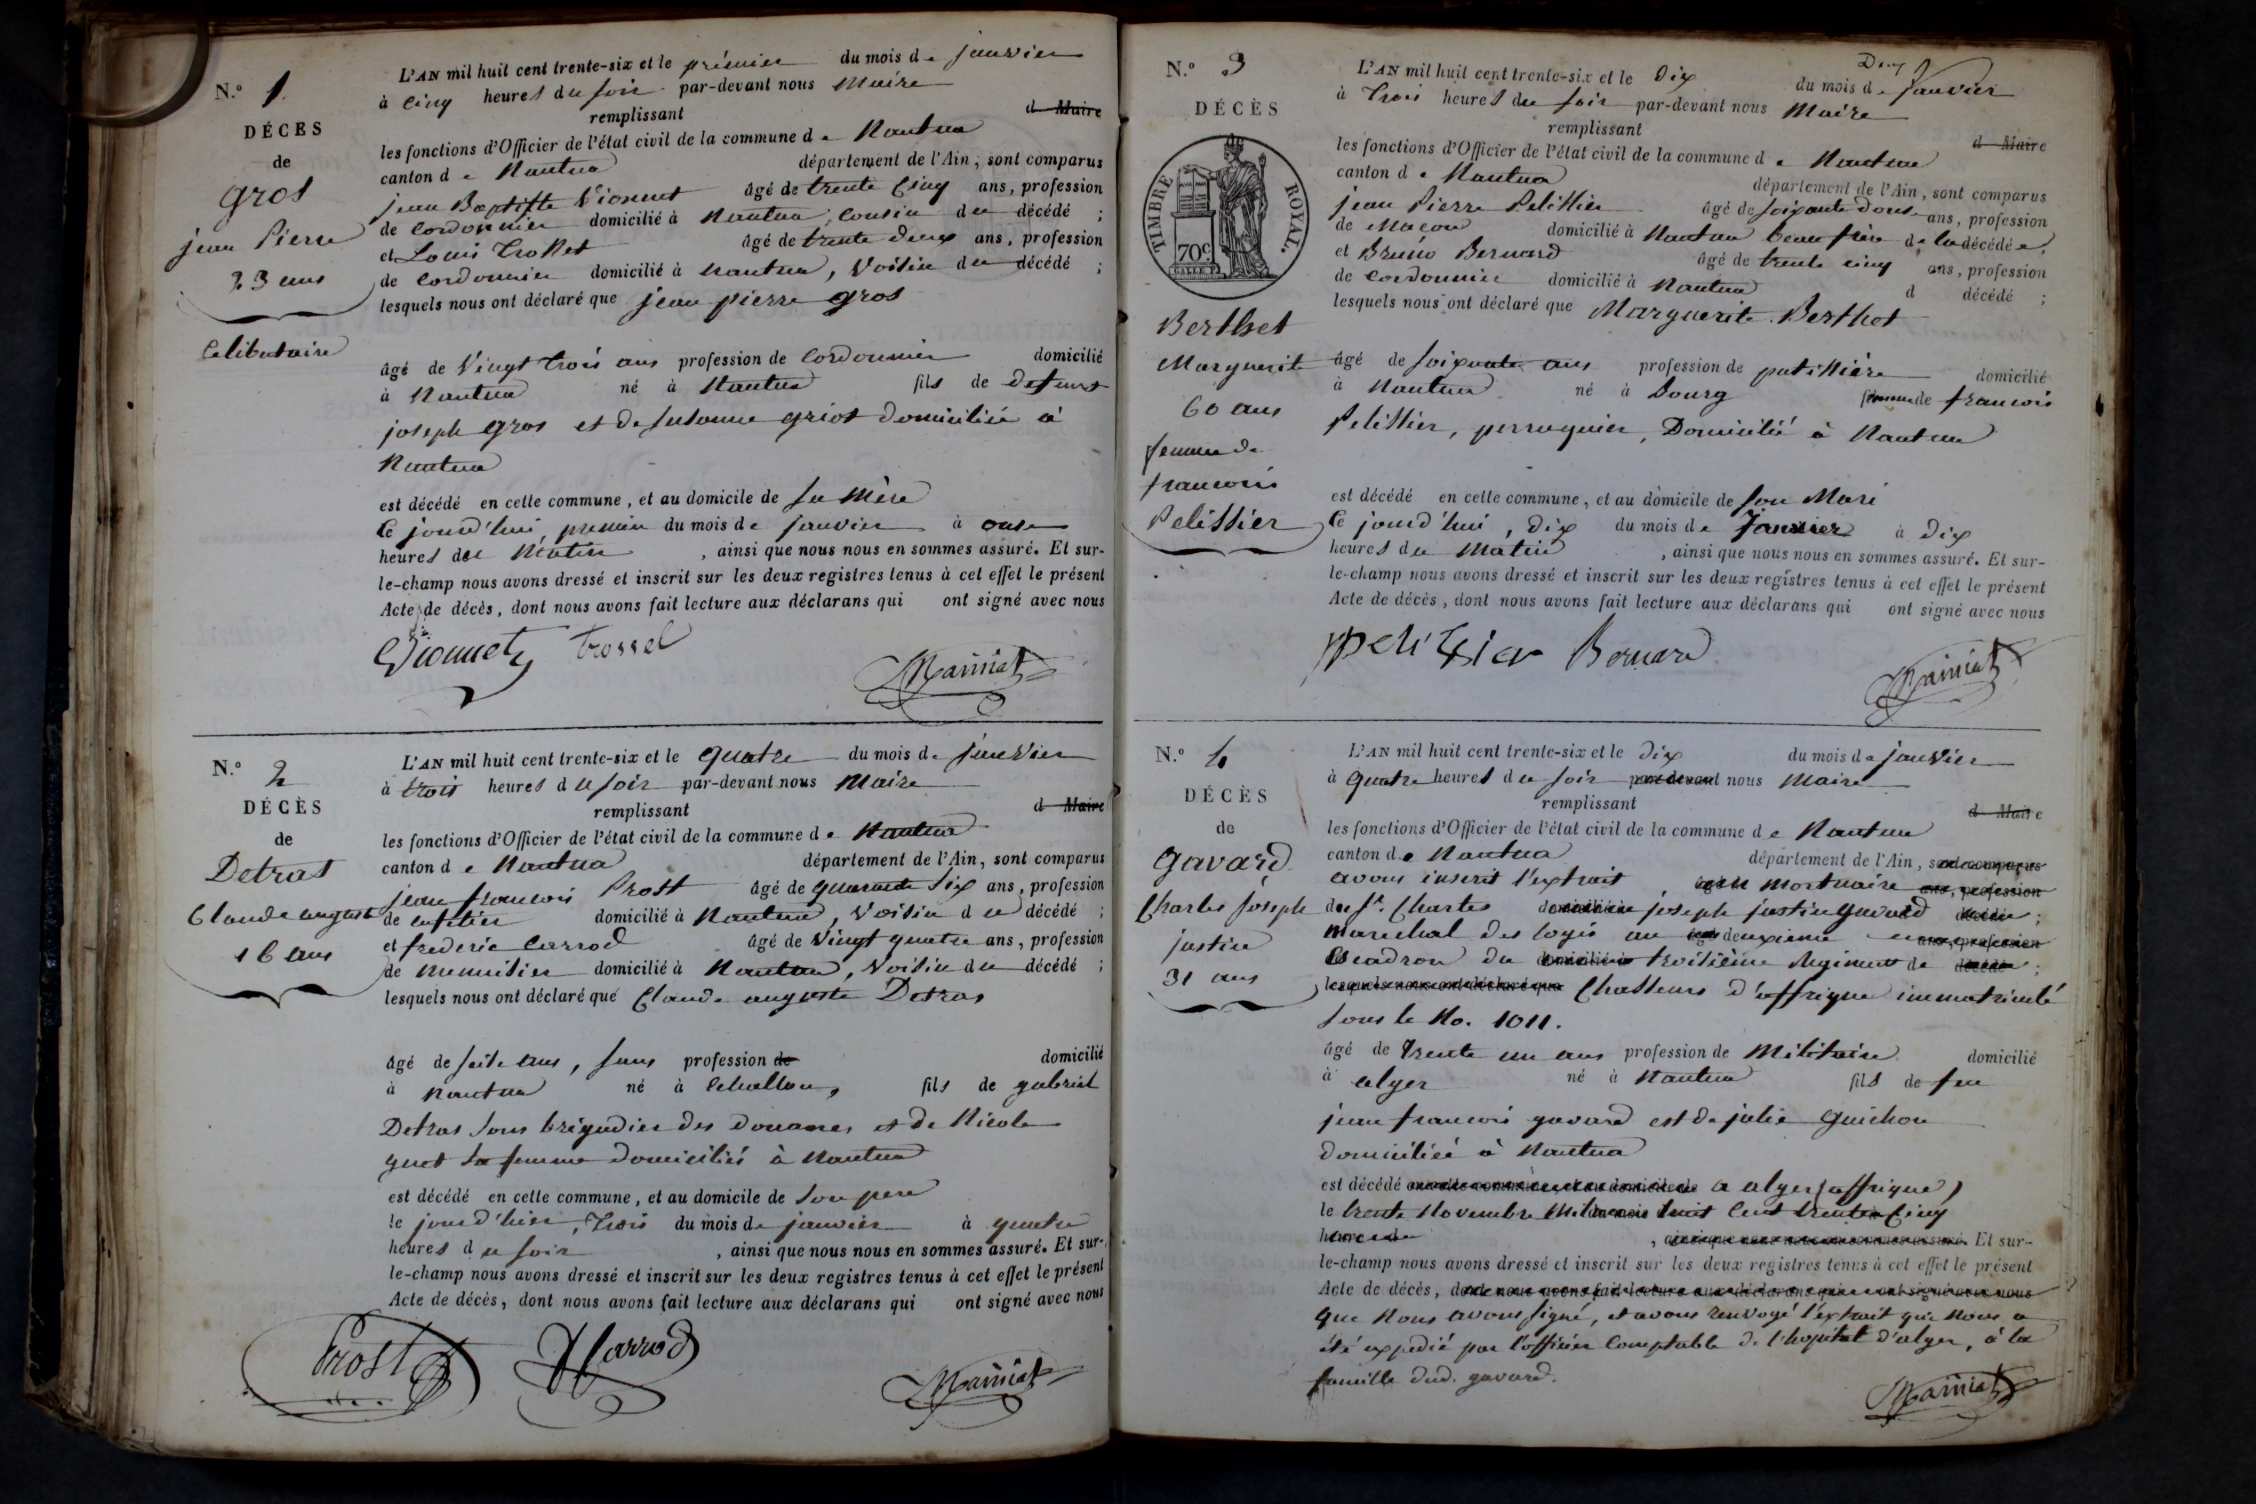 N.º 1.
DÉCES
de
gros
jean Pierre
23 ans
Celibataire
L'AN mil huit cent trente-six et le prémier du mois de janvier
à Cinq heures du soir par-devant nous Maire
remplissant d Maire
les fonctions d'Officier de l'état civil de la commune de Nantua
canton de Nantua département de l'Ain, sont comparus
jean Baptiste Vionnet âgé de trente Cinq ans, profession
de Cordonnier domicilié à Nantua, Cousin du décédé ;
et Louis Trosset âgé de trente deux ans, profession
de Cordonnier domicilié à nantua, Voisin du décédé ;
lesquels nous ont déclaré que jean pierre gros
âgé de Vingt trois ans profession de Cordonnier domicilié
à Nantua né à Nantua fils de defunt
joseph gros et de Susanne griot domiciliée à
Nantua
est décédé en cette commune, et au domicile de sa Mère
Ce jourd'hui, premier du mois de janvier à onze
heures du Matin , ainsi que nous nous en sommes assuré. Et sur-
le-champ nous avons dressé et inscrit sur les deux registres tenus à cet effet le présent
Acte de décès, dont nous avons fait lecture aux déclarans qui ont signé avec nous
Vionnet Trossel Mainiat
N.º 2
DÉCÈS
de
Detras
Claude auguste
16 ans
L'AN mil huit cent trente-six et le quatre du mois de janvier
à trois heures du soir par-devant nous Maire
remplissant d Maire
les fonctions d'Officier de l'état civil de la commune de Nantua
canton de Nantua département de l'Ain, sont comparus
jean francois Prost âgé de quarante six ans, profession
de domicilié à Nantua, Voisin du décédé ;
et frederic Carrod âgé de Vingt quatre ans, profession
de menuisier domicilié à Nantua, Voisin du décédé ;
lesquels nous ont déclaré que Claude auguste Detras
âgé de seize ans, sans profession de domicilié
à Nantua né à Echallon, fils de gabriel
Detras sous brigadier des douanes et de Nicole
guot sa femme domiciliés à Nantua
est décédé en cette commune, et au domicile de son pere
le jour d'hier, trois du mois de janvier à quatre
heures du soir , ainsi que nous nous en sommes assuré. Et sur-
le-champ nous avons dressé et inscrit sur les deux registres tenus à cet effet le présent
Acte de décès, dont nous avons fait lecture aux déclarans qui ont signé avec nous
Prost Carrod Mainiat
N.º 3
DÉCÈS
TIMBRE ROYAL.
70c
Berthet
Marguerite
60 ans
femme de
francois
Pelissier
L'AN mil huit cent trente-six et le Dix du mois de Janvier
à Trois heures du soir par-devant nous Maire
remplissant d Maire
les fonctions d'Officier de l'état civil de la commune de Nantua
canton de Nantua département de l'Ain, sont comparus
jean Pierre Pelissier âgé de soixante douze ans, profession
de Macon domicilié à Nantua beau frère de la décédée ;
et Bruno Bernard âgé de trente cinq ans, profession
de Cordonnier domicilié à Nantua d décédé ;
lesquels nous ont déclaré que Marguerite Berthet
âgé de soixante ans profession de patissière domicilié
à Nantua né à Bourg femme de francois
Pelissier, perruquier, Domicilié à Nantua
est décédé en cette commune, et au domicile de son Mari
Ce jourd'hui, dix du mois de Janvier à dix
heures du Matin , ainsi que nous nous en sommes assuré. Et sur-
le-champ nous avons dressé et inscrit sur les deux registres tenus à cet effet le présent
Acte de décès, dont nous avons fait lecture aux déclarans qui ont signé avec nous
Bernard Mainiat
N.º 4
DÉCÈS
de
gavard
Charles joseph
justin
31 ans
L'AN mil huit cent trente-six et le dix du mois de janvier
à quatre heures du soir par-devant nous Maire
remplissant d Maire
les fonctions d'Officier de l'état civil de la commune de Nantua
canton de Nantua département de l'Ain, sont comparus
avons inscrit l'extrait mortuaire ans, profession
du Sr. Charles joseph justin gavard ;
Marechal des logis au deuxieme ans, profession
Escadron du troisième Regiment de décédé ;
lesquels nous ont déclaré que Chasseurs d'affrique immatriculé
sous le No. 1011.
âgé de trente un ans profession de Militaire domicilié
à alger né à Nantua fils de feu
jean francois gavard est de julie guichon
domiciliée à Nantua
est décédé en cette commune, et au domicile de a alger (affrique)
le trente Novembre Mil huit Cent trente Cinq
heures , ainsi que nous nous en sommes assuré. Et sur-
le-champ nous avons dressé et inscrit sur les deux registres tenus à cet effet le présent
Acte de décès, dont nous avons fait lecture aux déclarans qui ont signé avec nous
que Nous avons signé, et avons renvoyé l'extrait qui nous a
été expedié par l'officier Comptable de l'hopital d'alger, à la
famille dud. gavard.
Mainiat